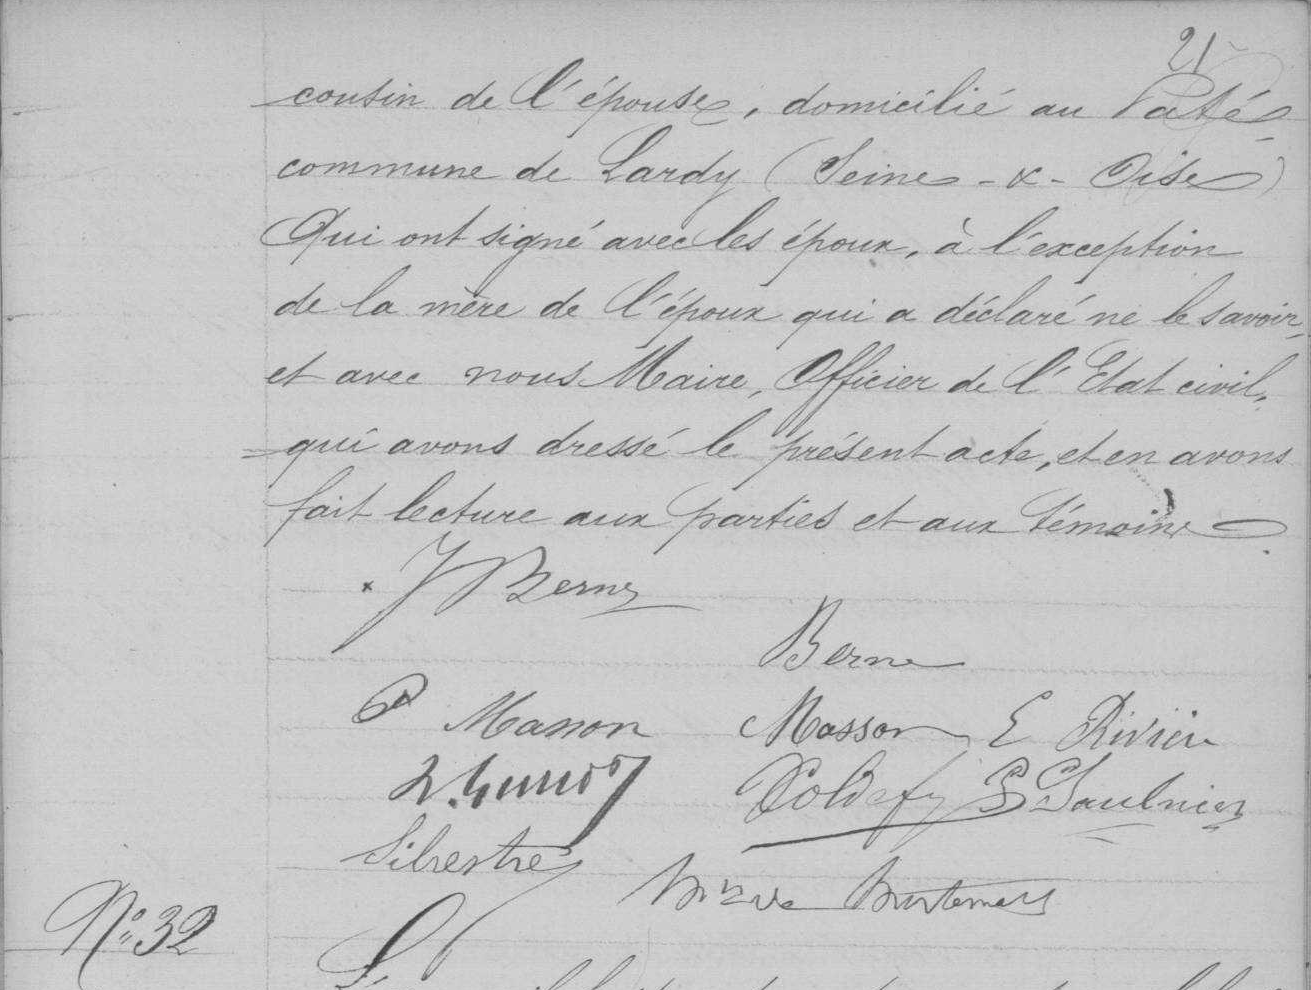 21
cousin de l'épouse, domicilié au Pâté
commune de Lardy (Seine-&-Oise)
Qui ont signé avec les époux, à l'exception
de la mère de l'époux qui a déclaré ne le savoir,
et avec nous Maire, Officier de l'Etat civil,
qui avons dressé le présent acte, et en avons
fait lecture aux parties et aux témoins
J Berne
Berne
P Masson Masson E Rivière
Coldefy Saulnier
Silvestre
Nº 32